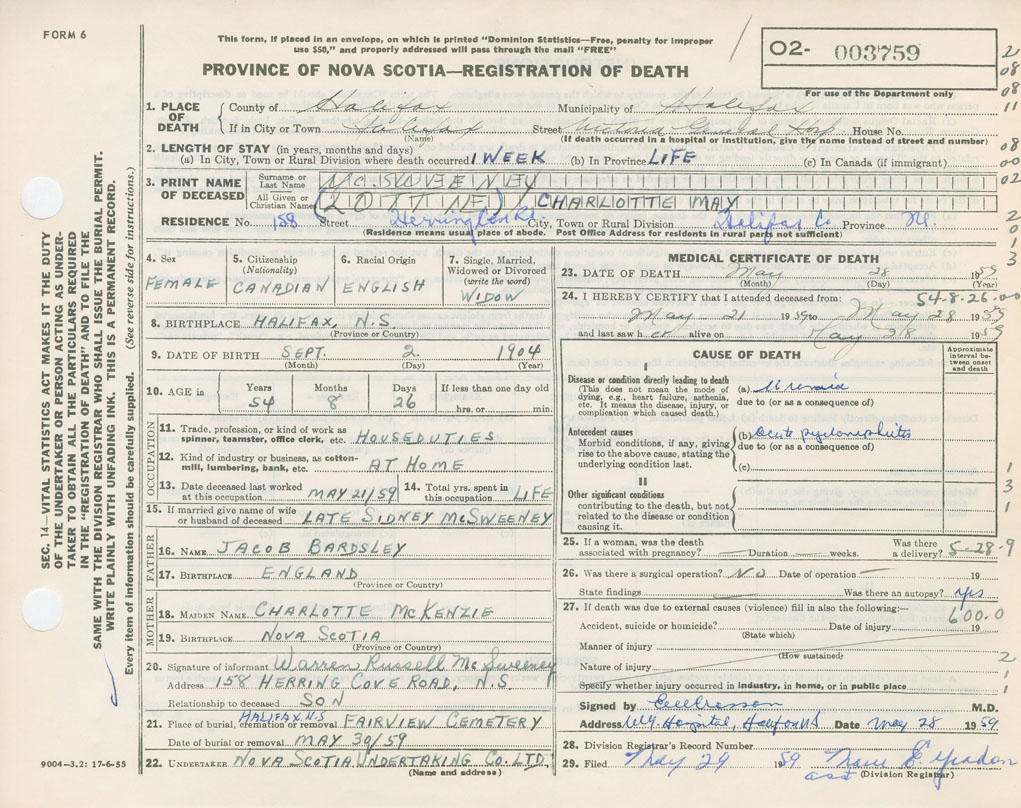 FORM 6
This form, if placed in an envelope, on which is printed "Dominion Statistics—Free, penalty for improper
use $50," and properly addressed will pass through the mail "FREE"
PROVINCE OF NOVA SCOTIA—REGISTRATION OF DEATH
O2- 003759
For use of the Department only
2
08
08
11
08
00
02
2
0
1
3
1. PLACE OF DEATH County of Halifax Municipality of Halifax
If in City or Town Halifax Street Victoria General Hosp House No.
(Name) (If death occurred in a hospital or institution, give the name instead of street and number)
2. LENGTH OF STAY (in years, months and days)
(a) In City, Town or Rural Division where death occurred 1 WEEK (b) In Province LIFE (c) In Canada (if immigrant)
3. PRINT NAME OF DECEASED Surname or Last Name McSWEENEY
All Given or Christian Names (LOTTIE) CHARLOTTE MAY
RESIDENCE No. 158 Street Herring Cove Rd. City, Town or Rural Division Halifax Co Province N.S.
(Residence means usual place of abode. Post Office Address for residents in rural parts not sufficient)
4. Sex FEMALE
5. Citizenship (Nationality) CANADIAN
6. Racial Origin ENGLISH
7. Single, Married, Widowed or Divorced (write the word) WIDOW
8. BIRTHPLACE HALIFAX, N.S.
(Province or Country)
9. DATE OF BIRTH SEPT. 2. 1904
(Month) (Day) (Year)
10. AGE in Years 54 Months 8 Days 26 If less than one day old hrs. or min.
OCCUPATION
11. Trade, profession, or kind of work as spinner, teamster, office clerk, etc. HOUSEDUTIES
12. Kind of industry or business, as cotton-mill, lumbering, bank, etc. AT HOME
13. Date deceased last worked at this occupation MAY 21/59 14. Total yrs. spent in this occupation LIFE
15. If married give name of wife or husband of deceased LATE SIDNEY McSWEENEY
FATHER
16. NAME JACOB BARDSLEY
17. BIRTHPLACE ENGLAND
(Province or Country)
MOTHER
18. MAIDEN NAME CHARLOTTE McKENZIE
19. BIRTHPLACE NOVA SCOTIA
(Province or Country)
20. Signature of informant Warren Russell McSweeney
Address 158 HERRING COVE ROAD, N.S.
Relationship to deceased SON
21. Place of burial, cremation or removal HALIFAX, N.S FAIRVIEW CEMETERY
Date of burial or removal MAY 30/59
22. UNDERTAKER NOVA SCOTIA UNDERTAKING CO. LTD.
(Name and address)
MEDICAL CERTIFICATE OF DEATH
23. DATE OF DEATH May 28 1959
(Month) (Day) (Year)
54-8-26-00
24. I HEREBY CERTIFY that I attended deceased from:
May 21 1959 to May 28 1959
and last saw her alive on May 28 1959
CAUSE OF DEATH
Approximate interval between onset and death
I
Disease or condition directly leading to death
(This does not mean the mode of dying, e.g., heart failure, asthenia, etc. It means the disease, injury, or complication which caused death.)
(a) Uremia
due to (or as a consequence of)
Antecedent causes
Morbid conditions, if any, giving rise to the above cause, stating the underlying condition last.
(b) acute pyelonephritis
due to (or as a consequence of)
(c)
II
Other significant conditions
contributing to the death, but not related to the disease or condition causing it.
1
3
1
25. If a woman, was the death associated with pregnancy? Duration weeks. Was there a delivery? 5-28-9
26. Was there a surgical operation? No Date of operation 19
State findings Was there an autopsy? yes
27. If death was due to external causes (violence) fill in also the following:—
600.0
Accident, suicide or homicide? Date of injury 19
(State which)
Manner of injury
(How sustained)
Nature of injury
Specify whether injury occurred in industry, in home, or in public place
2
1
1
Signed by M.D.
Address V.G. Hospital, Halifax NS Date May 28 1959
28. Division Registrar's Record Number
29. Filed May 29 1959
(Division Registrar)
SEC. 14—VITAL STATISTICS ACT MAKES IT THE DUTY
OF THE UNDERTAKER OR PERSON ACTING AS UNDER-
TAKER TO OBTAIN ALL THE PARTICULARS REQUIRED
IN THE "REGISTRATION OF DEATH" AND TO FILE THE
SAME WITH THE DIVISION REGISTRAR WHO SHALL ISSUE THE BURIAL PERMIT.
WRITE PLAINLY WITH UNFADING INK. THIS IS A PERMANENT RECORD.
Every item of information should be carefully supplied. (See reverse side for instructions.)
9004-3.2: 17-6-55